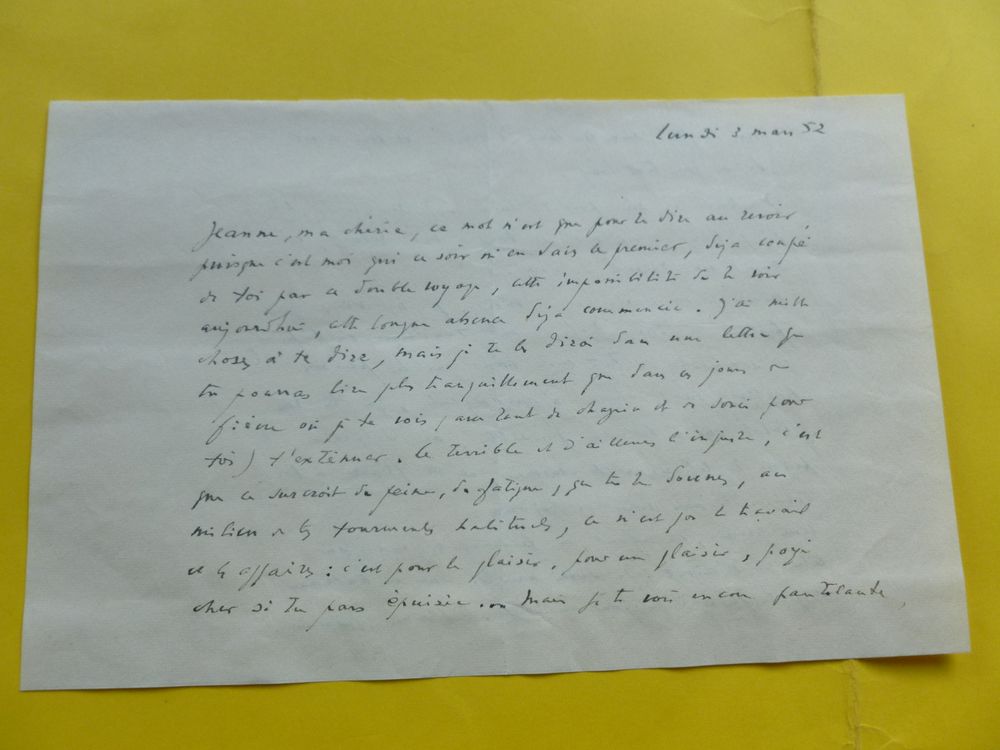 lundi 3 mars 52
Jeanne, ma chérie, ce mot n'est que pour te dire au revoir,
puisque c'est moi qui ce soir m'en vais le premier, déjà coupé
de toi par ce double voyage, cette impossibilité de te voir
aujourd'hui, cette longue absence déjà commencée. J'ai mille
choses à te dire, mais je te les dirai dans une lettre que
tu pourras lire plus tranquillement que dans ces jours de
fièvre où je te vois (avec tant de chagrin et de souci pour
toi) t'exténuer. Le terrible et d'ailleurs l'injuste, c'est
que ce surcroît de peine, de fatigue, que tu te donnes, au
milieu de tes tourments habituels, ce n'est pas le travail
et les affaires : c'est pour le plaisir, pour un plaisir, payé
cher si tu pars épuisée... Mais je te vois encore pantelante,